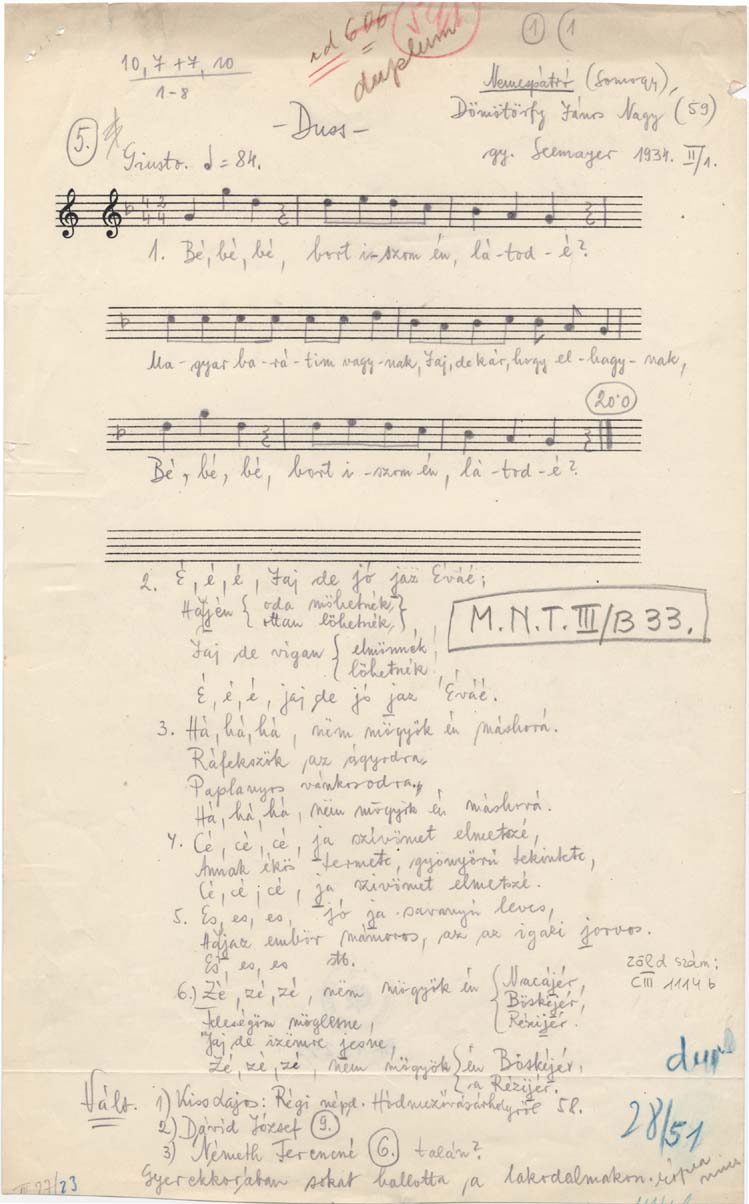 id 606
duplum
1 (1
10, 7+7, 10
1-8
Nemespátró (Somogy),
Dömötörfy János Nagy (59)
gy. Seemayer 1934. II/1.
-Duss-
5.
Giusto. = 84.
1. Bé, bé, bé, bort i-szom én, lá-tod-é?
Ma-gyar ba-rá-tim vagy-nak, Jaj, de kár, hogy el-hagy-nak,
20·0
Bé, bé, bé, bort i-szom én, lá-tod-é?
2. É, é, é, Jaj de jó jaz Éváé;
oda möhetnék,
ottan löhetnék,
M.N.T. III/B 33.
Jaj de vígan elmönnék,
löhetnék,
É, é, é, jaj de jó jaz Éváé.
3. Há, há, há, nëm mögyök én máshová.
Ráfekszök az ágyodra,
Paplanyos vánkosodra,
Há, há, há, nëm mögyök én máshová.
4. Cé, cé, cé, ja szívömet elmetszé,
Annak ékös termete, gyönyörű tekintete,
Cé, cé, cé, ja szívömet elmetszé.
5. Es, es, es, jó ja savanyú leves,
embör mámoros, az az igazi jorvos.
Es, es, es stb.
zöld szám:
CIII 1114 b
6.) Zé, zé, zé, nëm mögyök én Macájér,
Böskéjér,
Rézijér.
Feleségöm möglesne,
Jaj de ízëmre jesne,
Zé, zé, zé, nem mögyök én Böskéjér,
a Rézijér.
dur
Vált. 1) Kiss Lajos: Régi népd. Hódmezővásárhelyről 58.
2) Dávid József 9.
28/51
3) Németh Ferencné 6. talán?
Gyerekkorjában sokat hallotta a lakodalmakon.